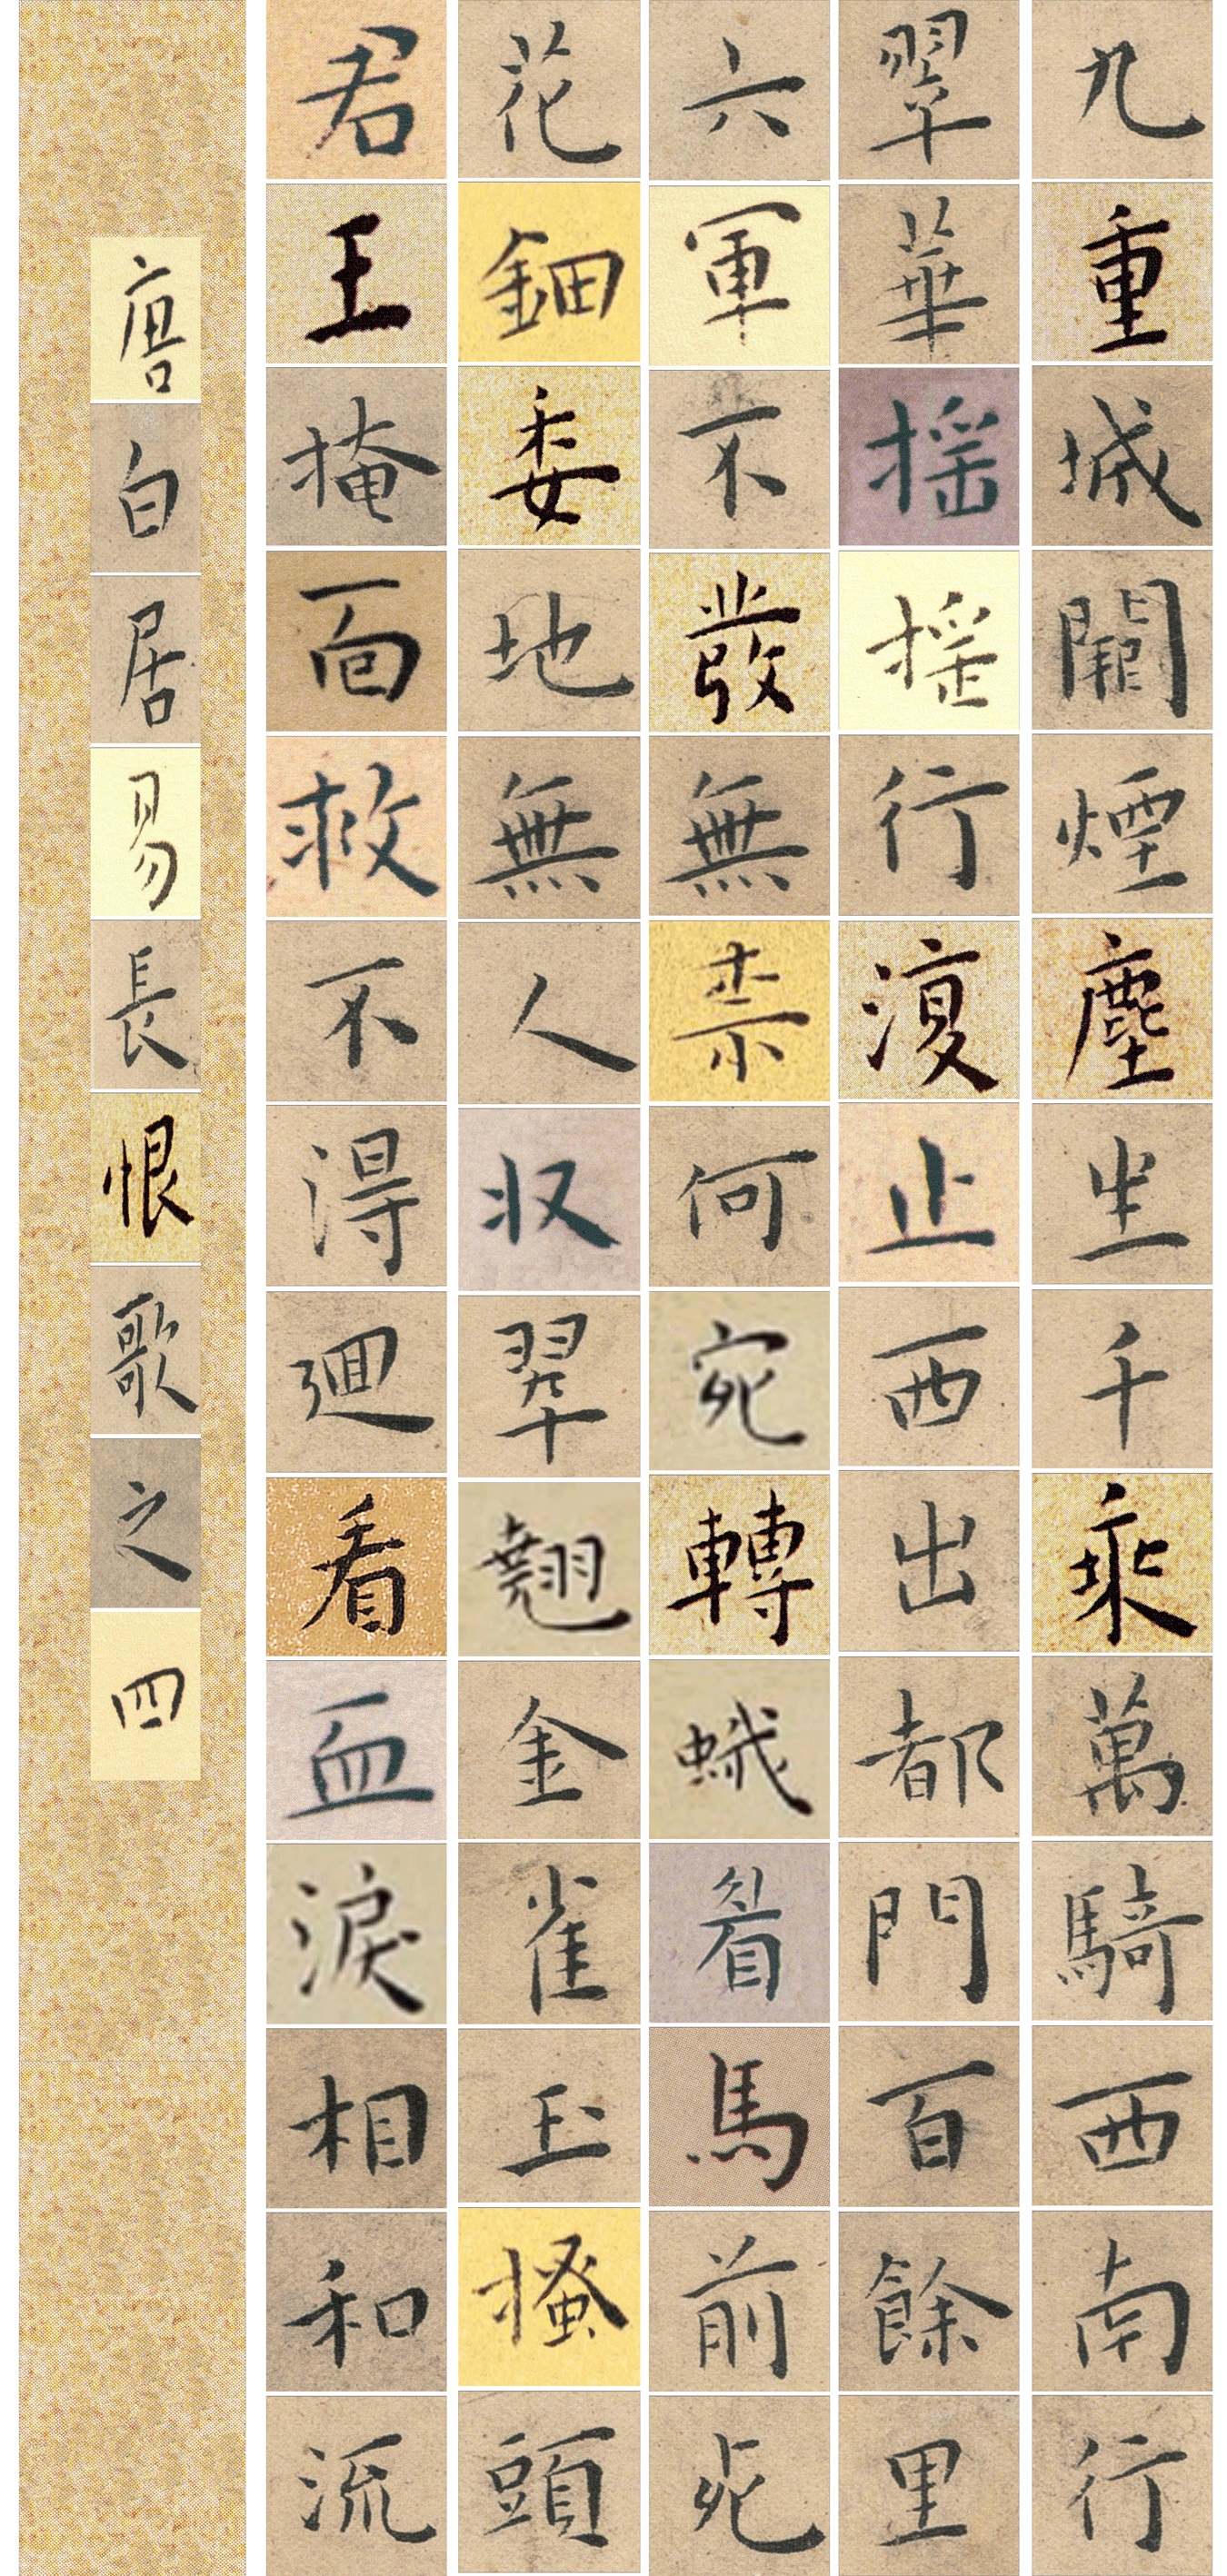 九重城闕煙塵生千乘萬騎西南行
翠華揺揺行復止西出都門百餘里
六軍不發無柰何宛轉蛾眉馬前死
花鈿委地無人収翠翹金雀玉搔頭
君王掩面救不得迴看血淚相和流
唐白居易長恨歌之四